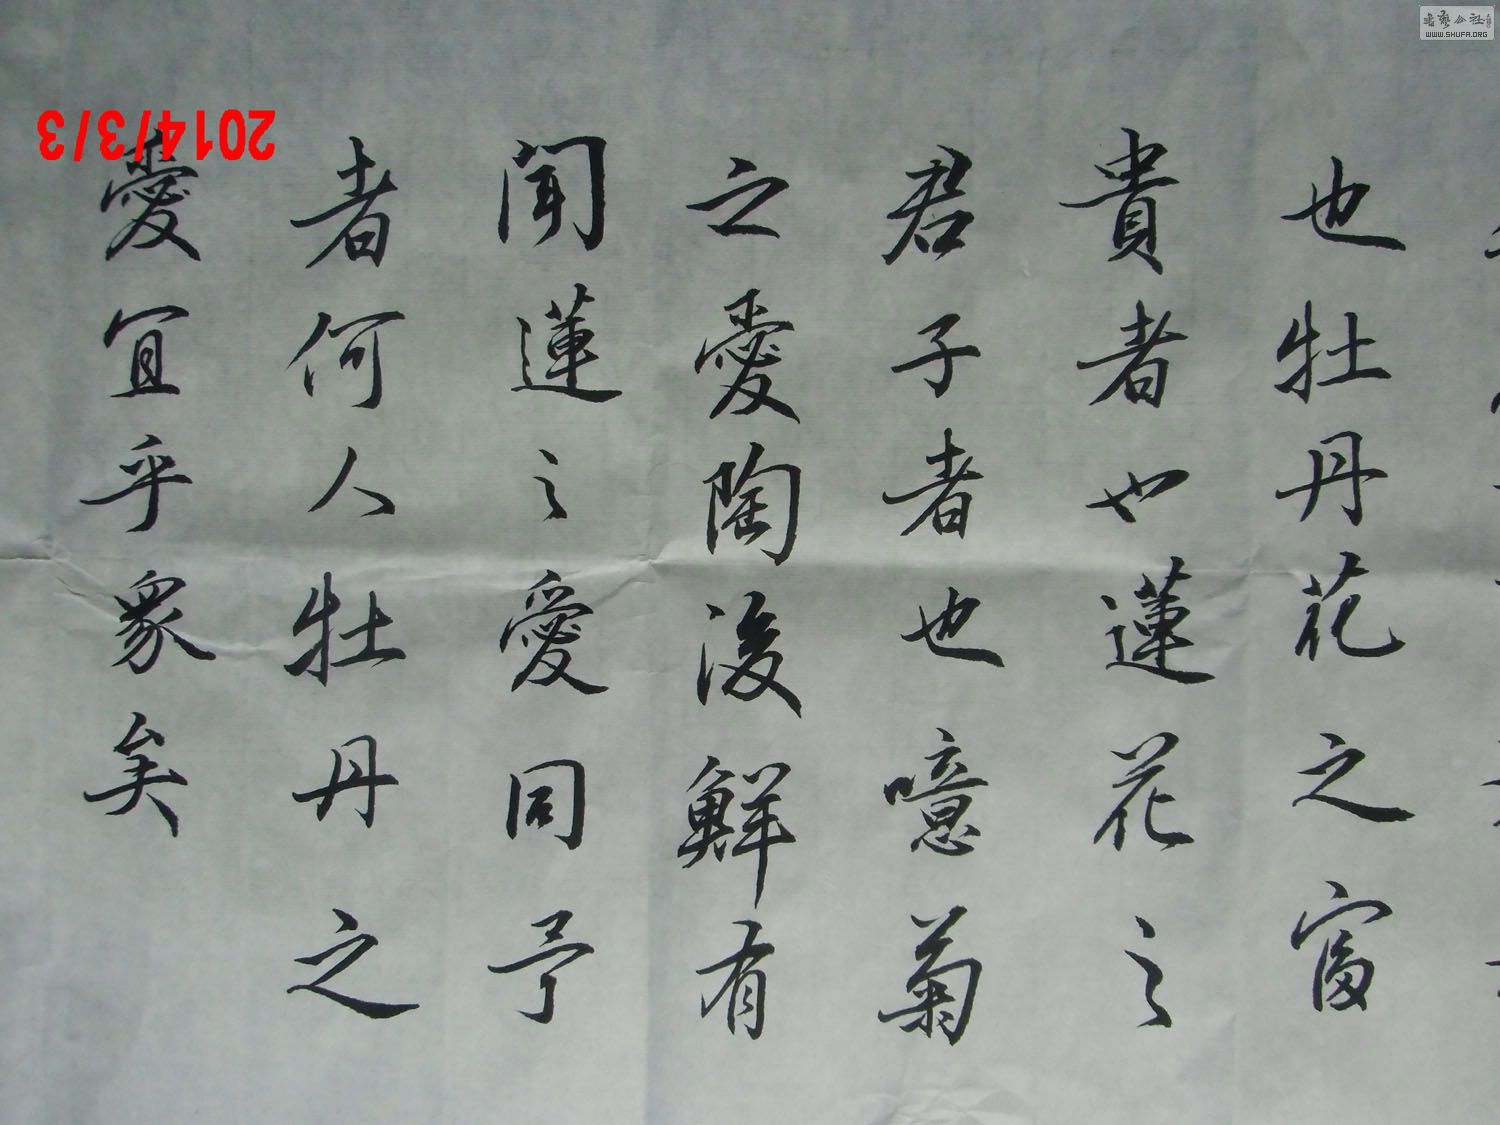 也牡丹花之富
貴者也蓮花之
君子者也噫菊
之愛陶後鮮有
聞蓮之愛同予
者何人牡丹之
愛宜乎衆矣
2014/3/3
WWW.SHUFA.ORG